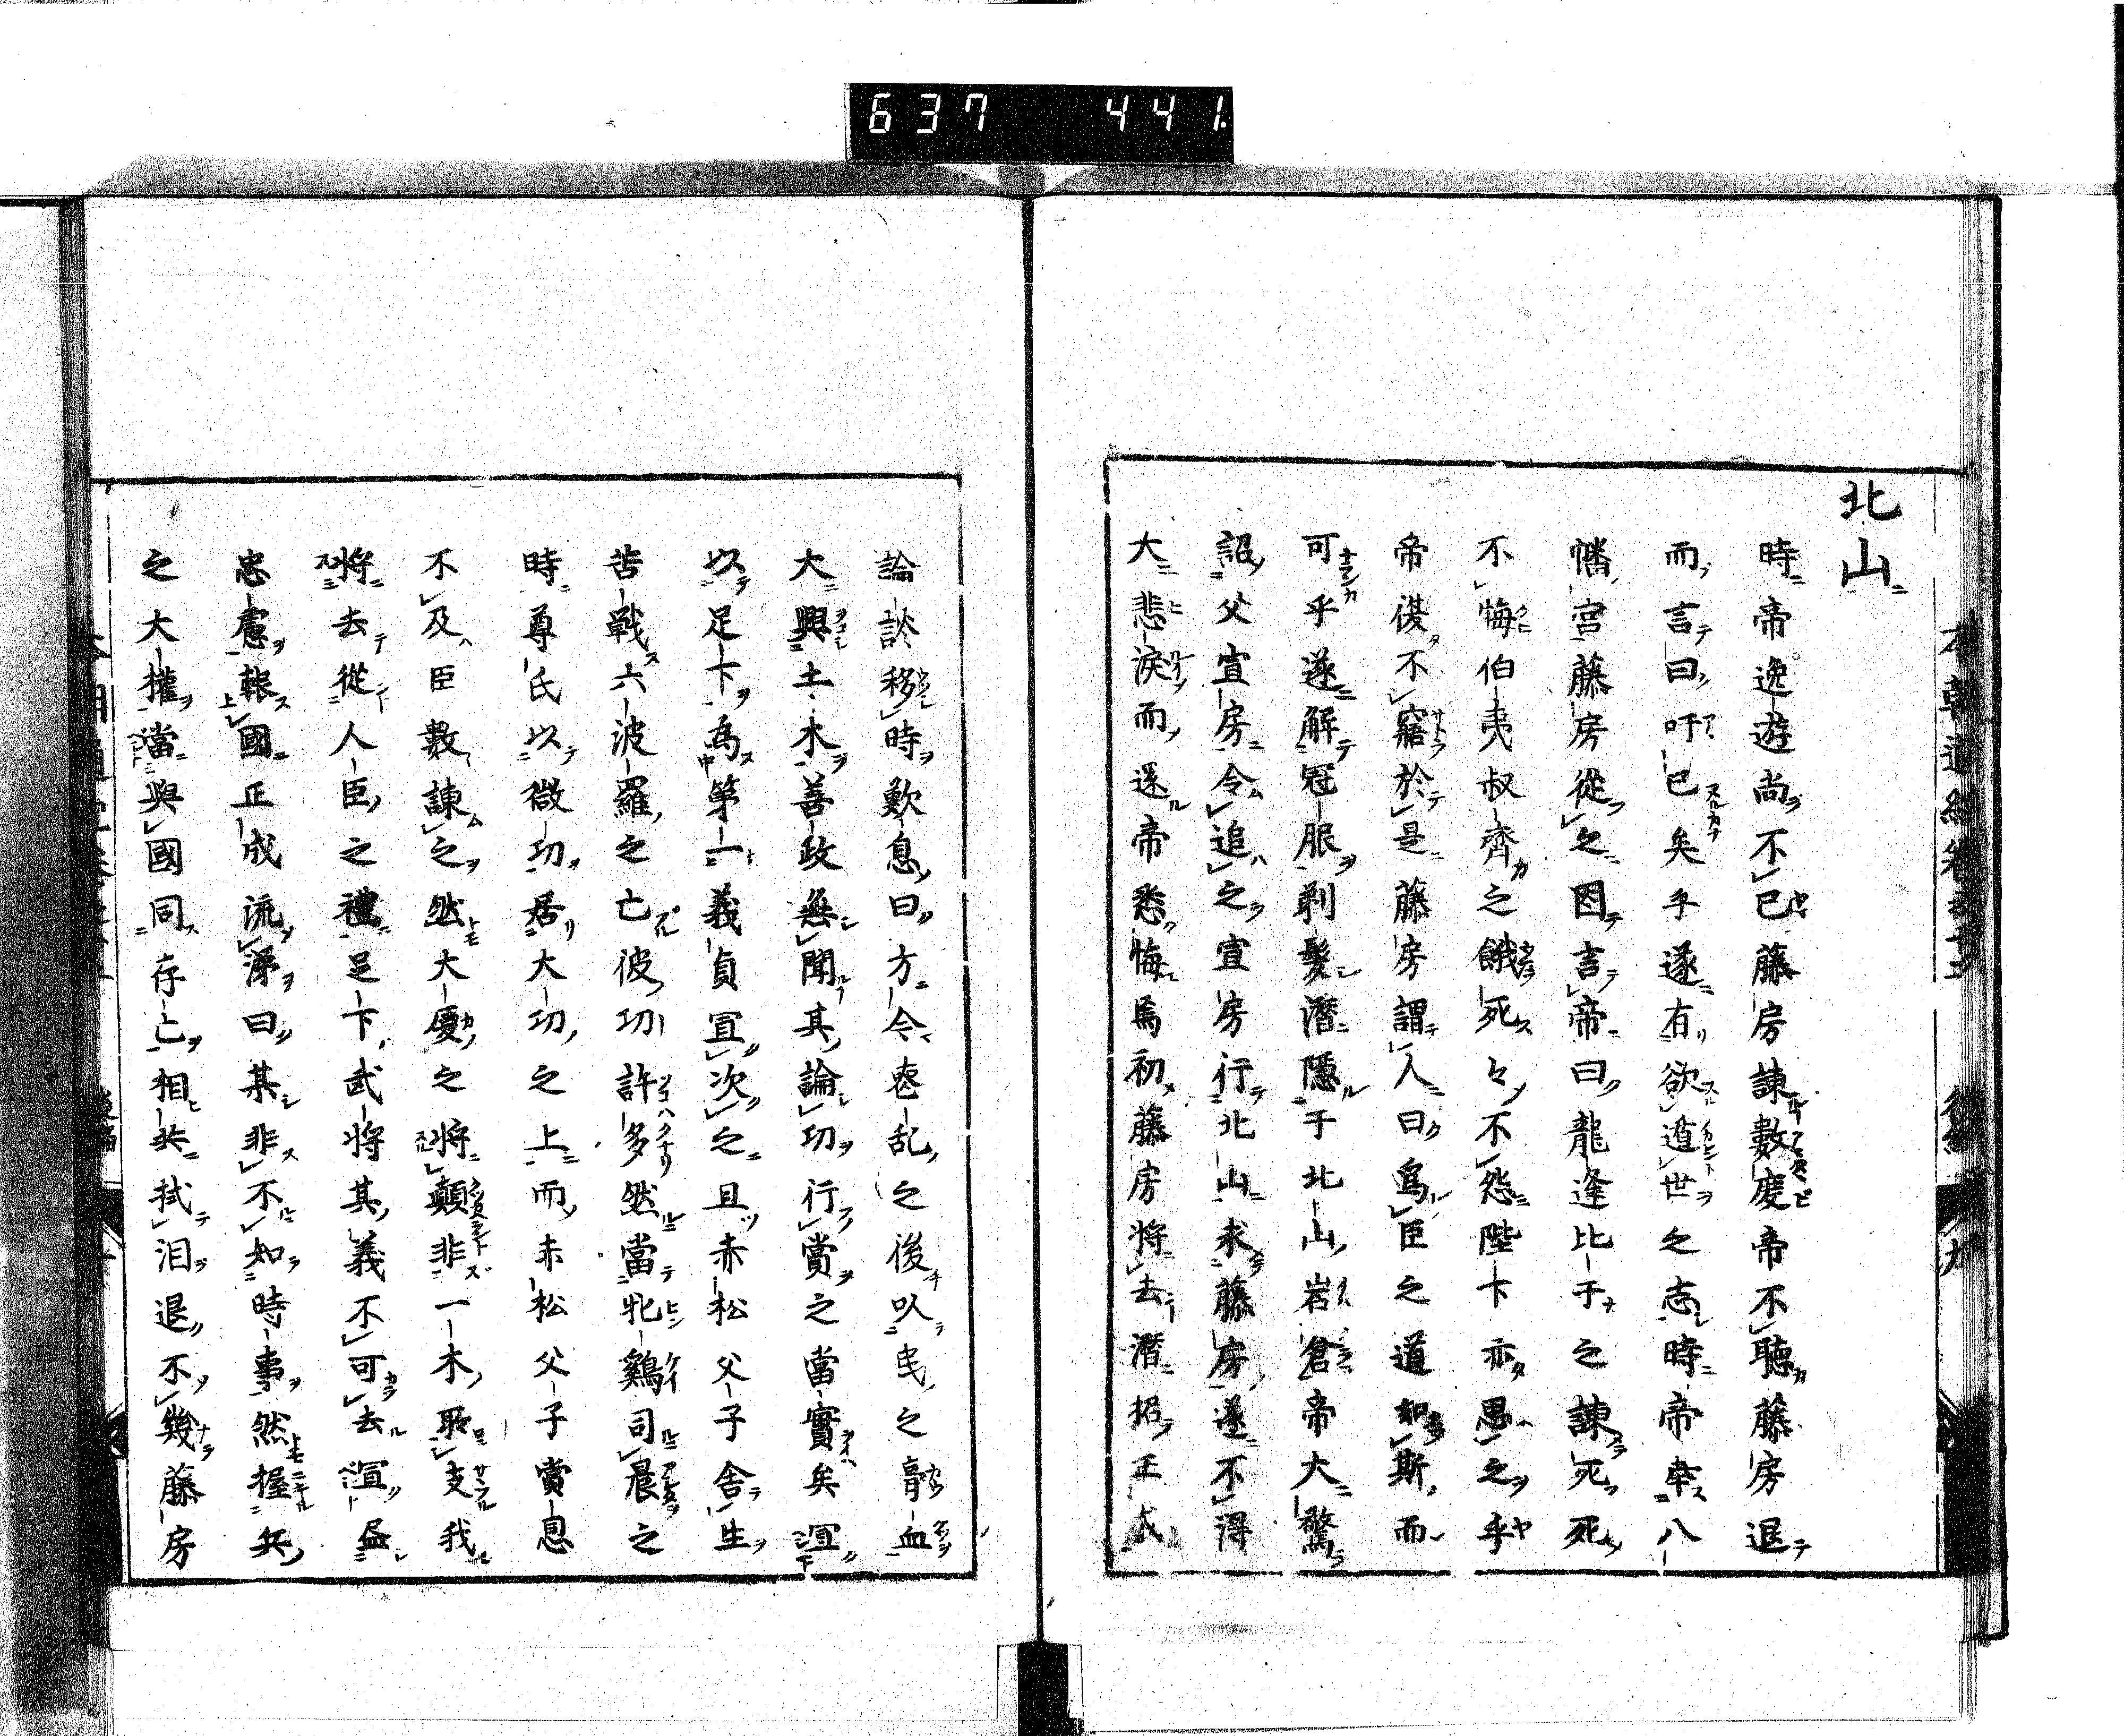 637 441.
北山
時帝逸遊尚不已藤房諫數度帝不聴藤房退
而言曰吁已矣乎遂有欲遁世之志時帝幸八
幡宮藤房從之因言帝曰龍逢比干之諫死死
不悔伯夷叔齊之餓死々不怨陛下亦愚之乎
帝復不寤於是藤房謂人曰為臣之道如斯而
可乎遂解冠服剃髮潛隱于北山岩倉帝大驚
詔父宣房令追之宣房行北山求藤房遂不得
大悲淚而還帝悉悔焉初藤房將去潛招正成
論談移時歎息曰方今喪乱之後以民之膏血
大興土木善政無聞其論功行賞之當實矣宜
以足下為第一義貞宜次之且赤松父子舎生
苦戰六波羅之亡彼功許多然當牝鷄司晨之
時尊氏以微功居大功之上而赤松父子賞息
不及臣數諫之然大廈之將顛非一木所支我
將去從人臣之禮足下武將其義不可去宜益
忠慮報國正成流涕曰某非不知時事然握兵
之大權當與國同存亡相共拭泪退不幾藤房